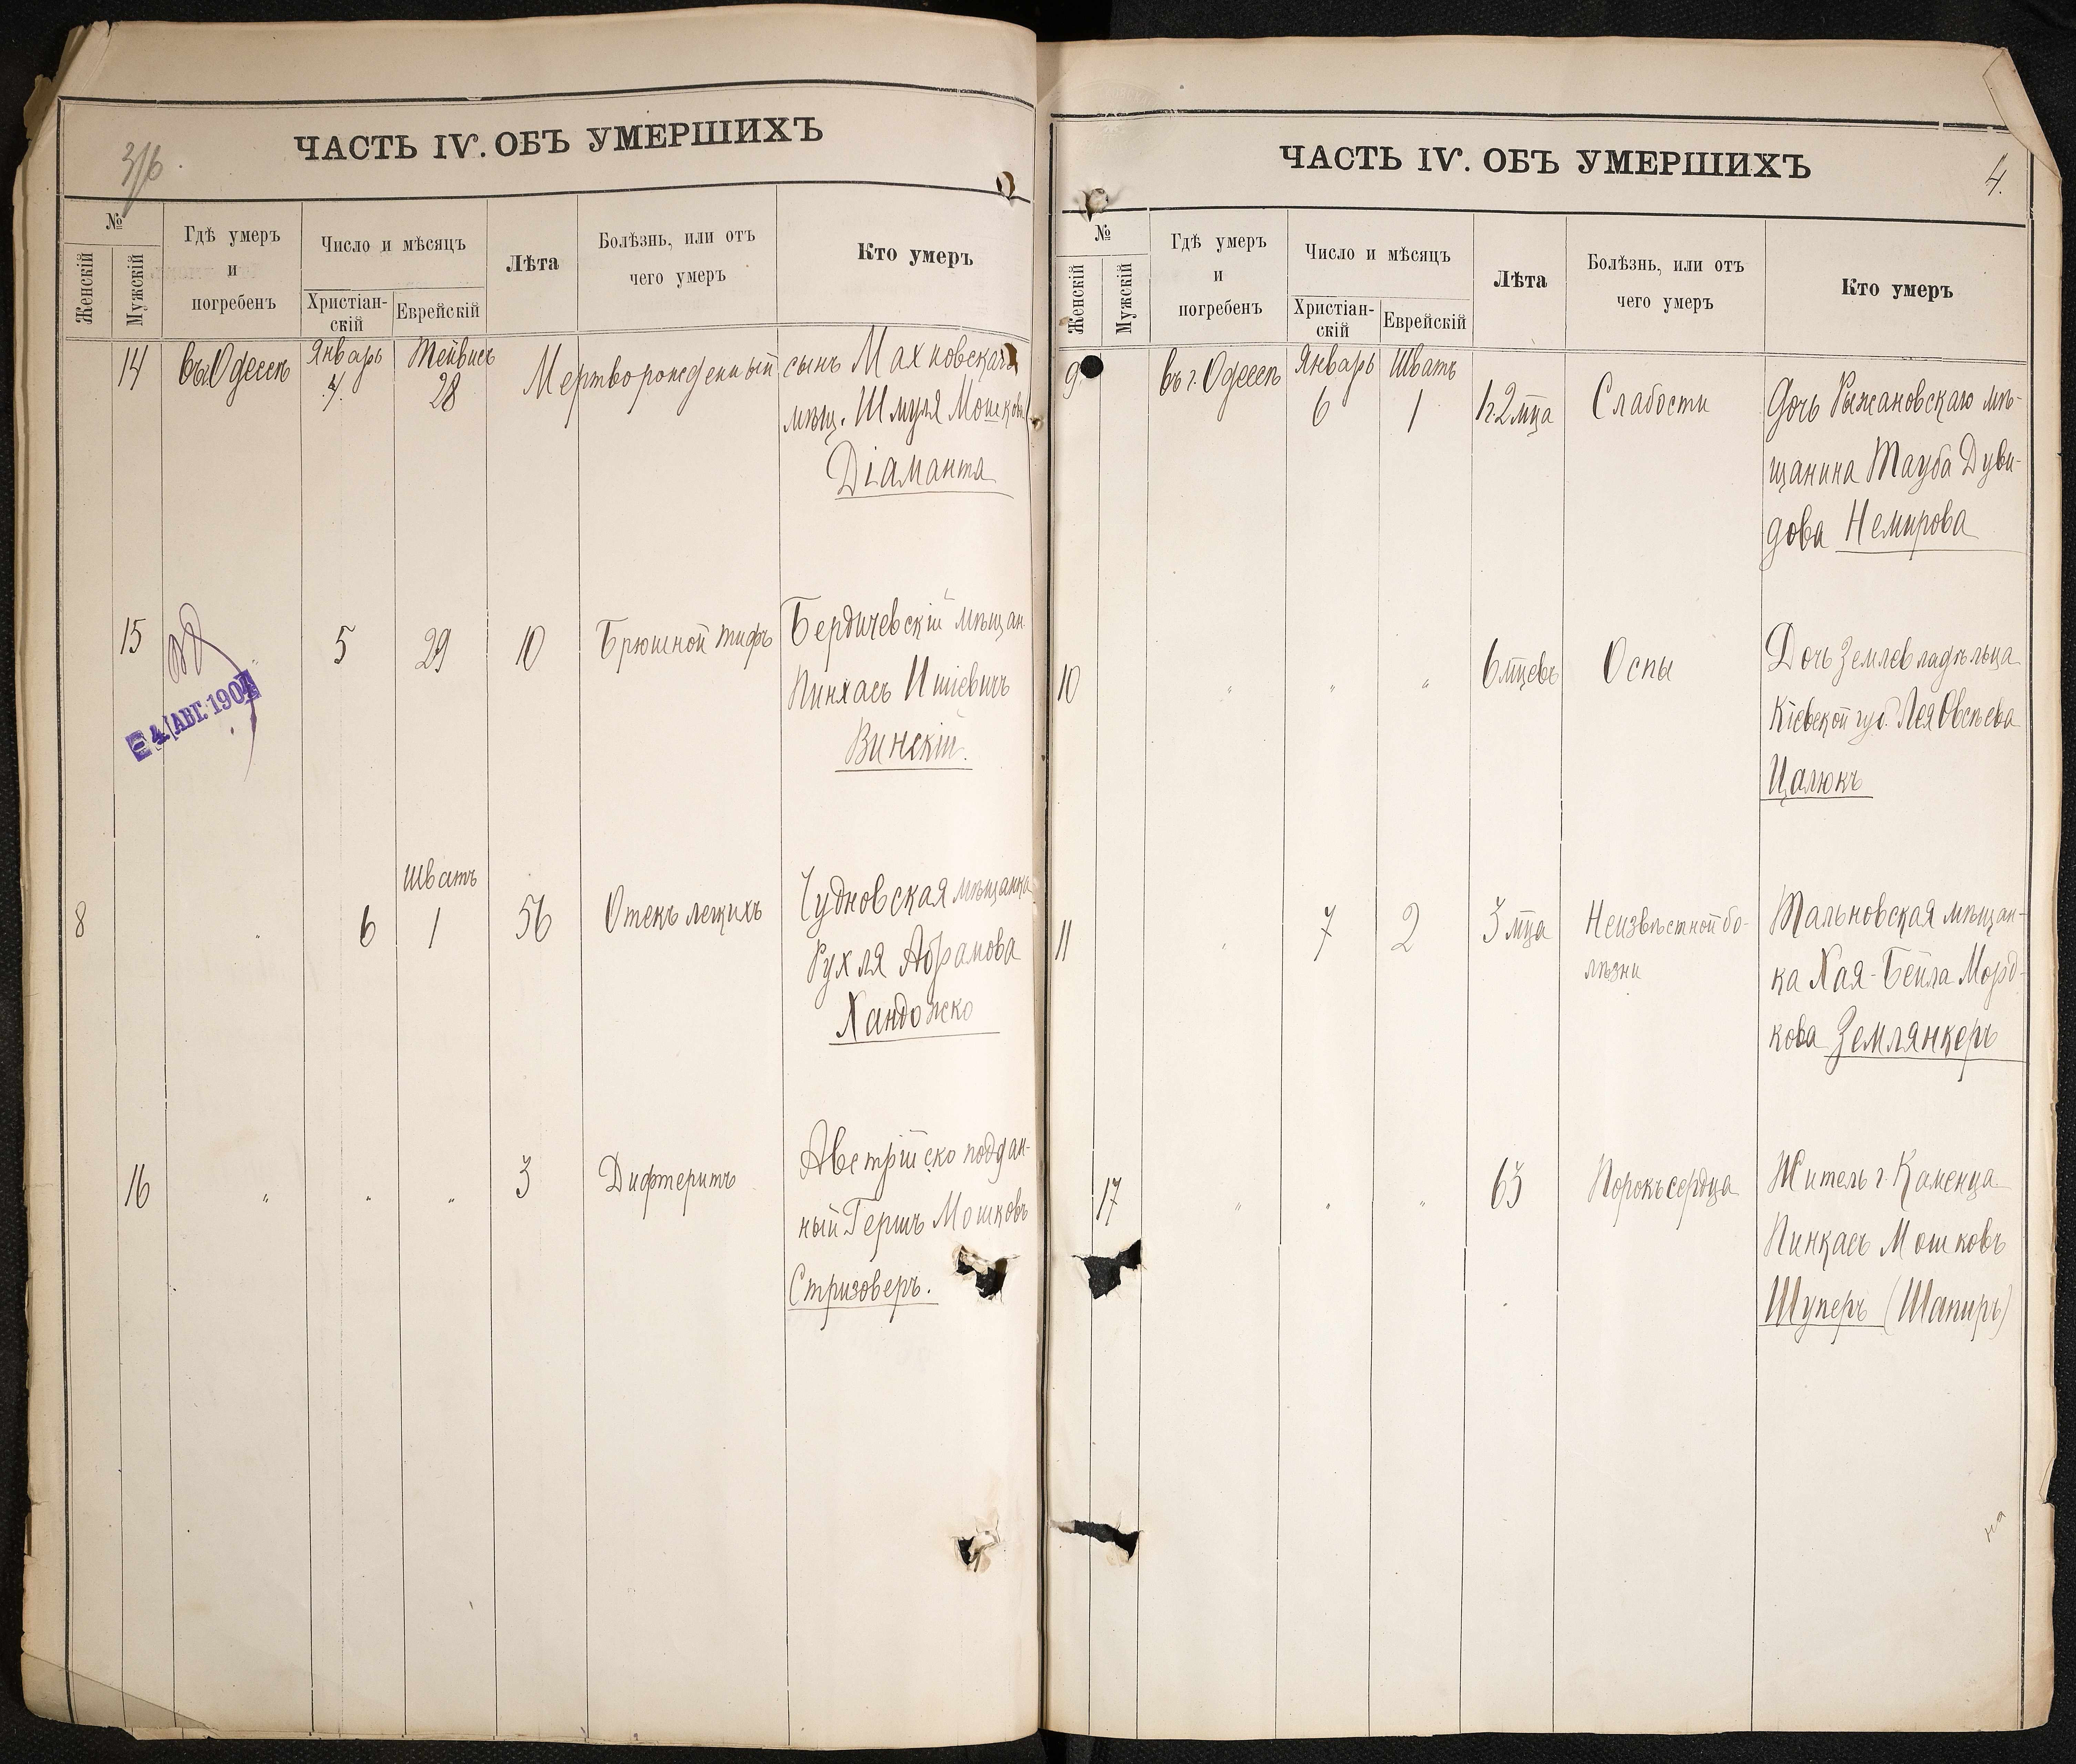 ЧАСТЬ IV. ОБЪ УМЕРШИХЪ
№
Женскій
Мужскій
Гдѣ умеръ
и
погребенъ
Число и мѣсяцъ
Христіан-
скій
Еврейскій
Лѣта
Болѣзнь, или отъ
чего умеръ
Кто умеръ
14 въ г. Одессѣ Январь Тейвисъ Мертворожденный сынъ Махновскаго
4. 28 мѣщ. Шмуля Мошкова
Діаманта
15 " 5 29 10 Брюшной тифъ Бердичевскій мѣщан.
Пинхасъ Ишіевичъ
Винскій.
4 АВГ. 1907
Шватъ
8 " 6 1 56 Отекъ легкихъ Чудновская мѣщанка
Рухля Абрамова
Хандожко
16 " " " 3 Дифтеритъ Австрійско поддан-
ный Гершъ Мошковъ
Стризоверъ.
ЧАСТЬ IV. ОБЪ УМЕРШИХЪ
4.
№
Женскій
Мужскій
Гдѣ умеръ
и
погребенъ
Число и мѣсяцъ
Христіан-
скій
Еврейскій
Лѣта
Болѣзнь, или отъ
чего умеръ
Кто умеръ
9 въ г. Одессѣ Январь Шватъ
6 1 1/2 мца Слабости Дочь Рыжановскаго мѣ-
щанина Тауба Дуви-
дова Немирова
10 " " " 6 мцевъ Оспы Дочь Землевладѣльца
Кіевской губ. Лея Овсѣева
Цалюкъ
11 " 7 2 3 мца Неизвѣстной бо- Тальновская мѣщан-
лѣзни ка Хая-Бейла Морд-
кова Землянкеръ
17 " " " 63 Порокъ сердца Житель г. Каменца
Пинкасъ Мошковъ
Шуперъ (Шапиръ)
на